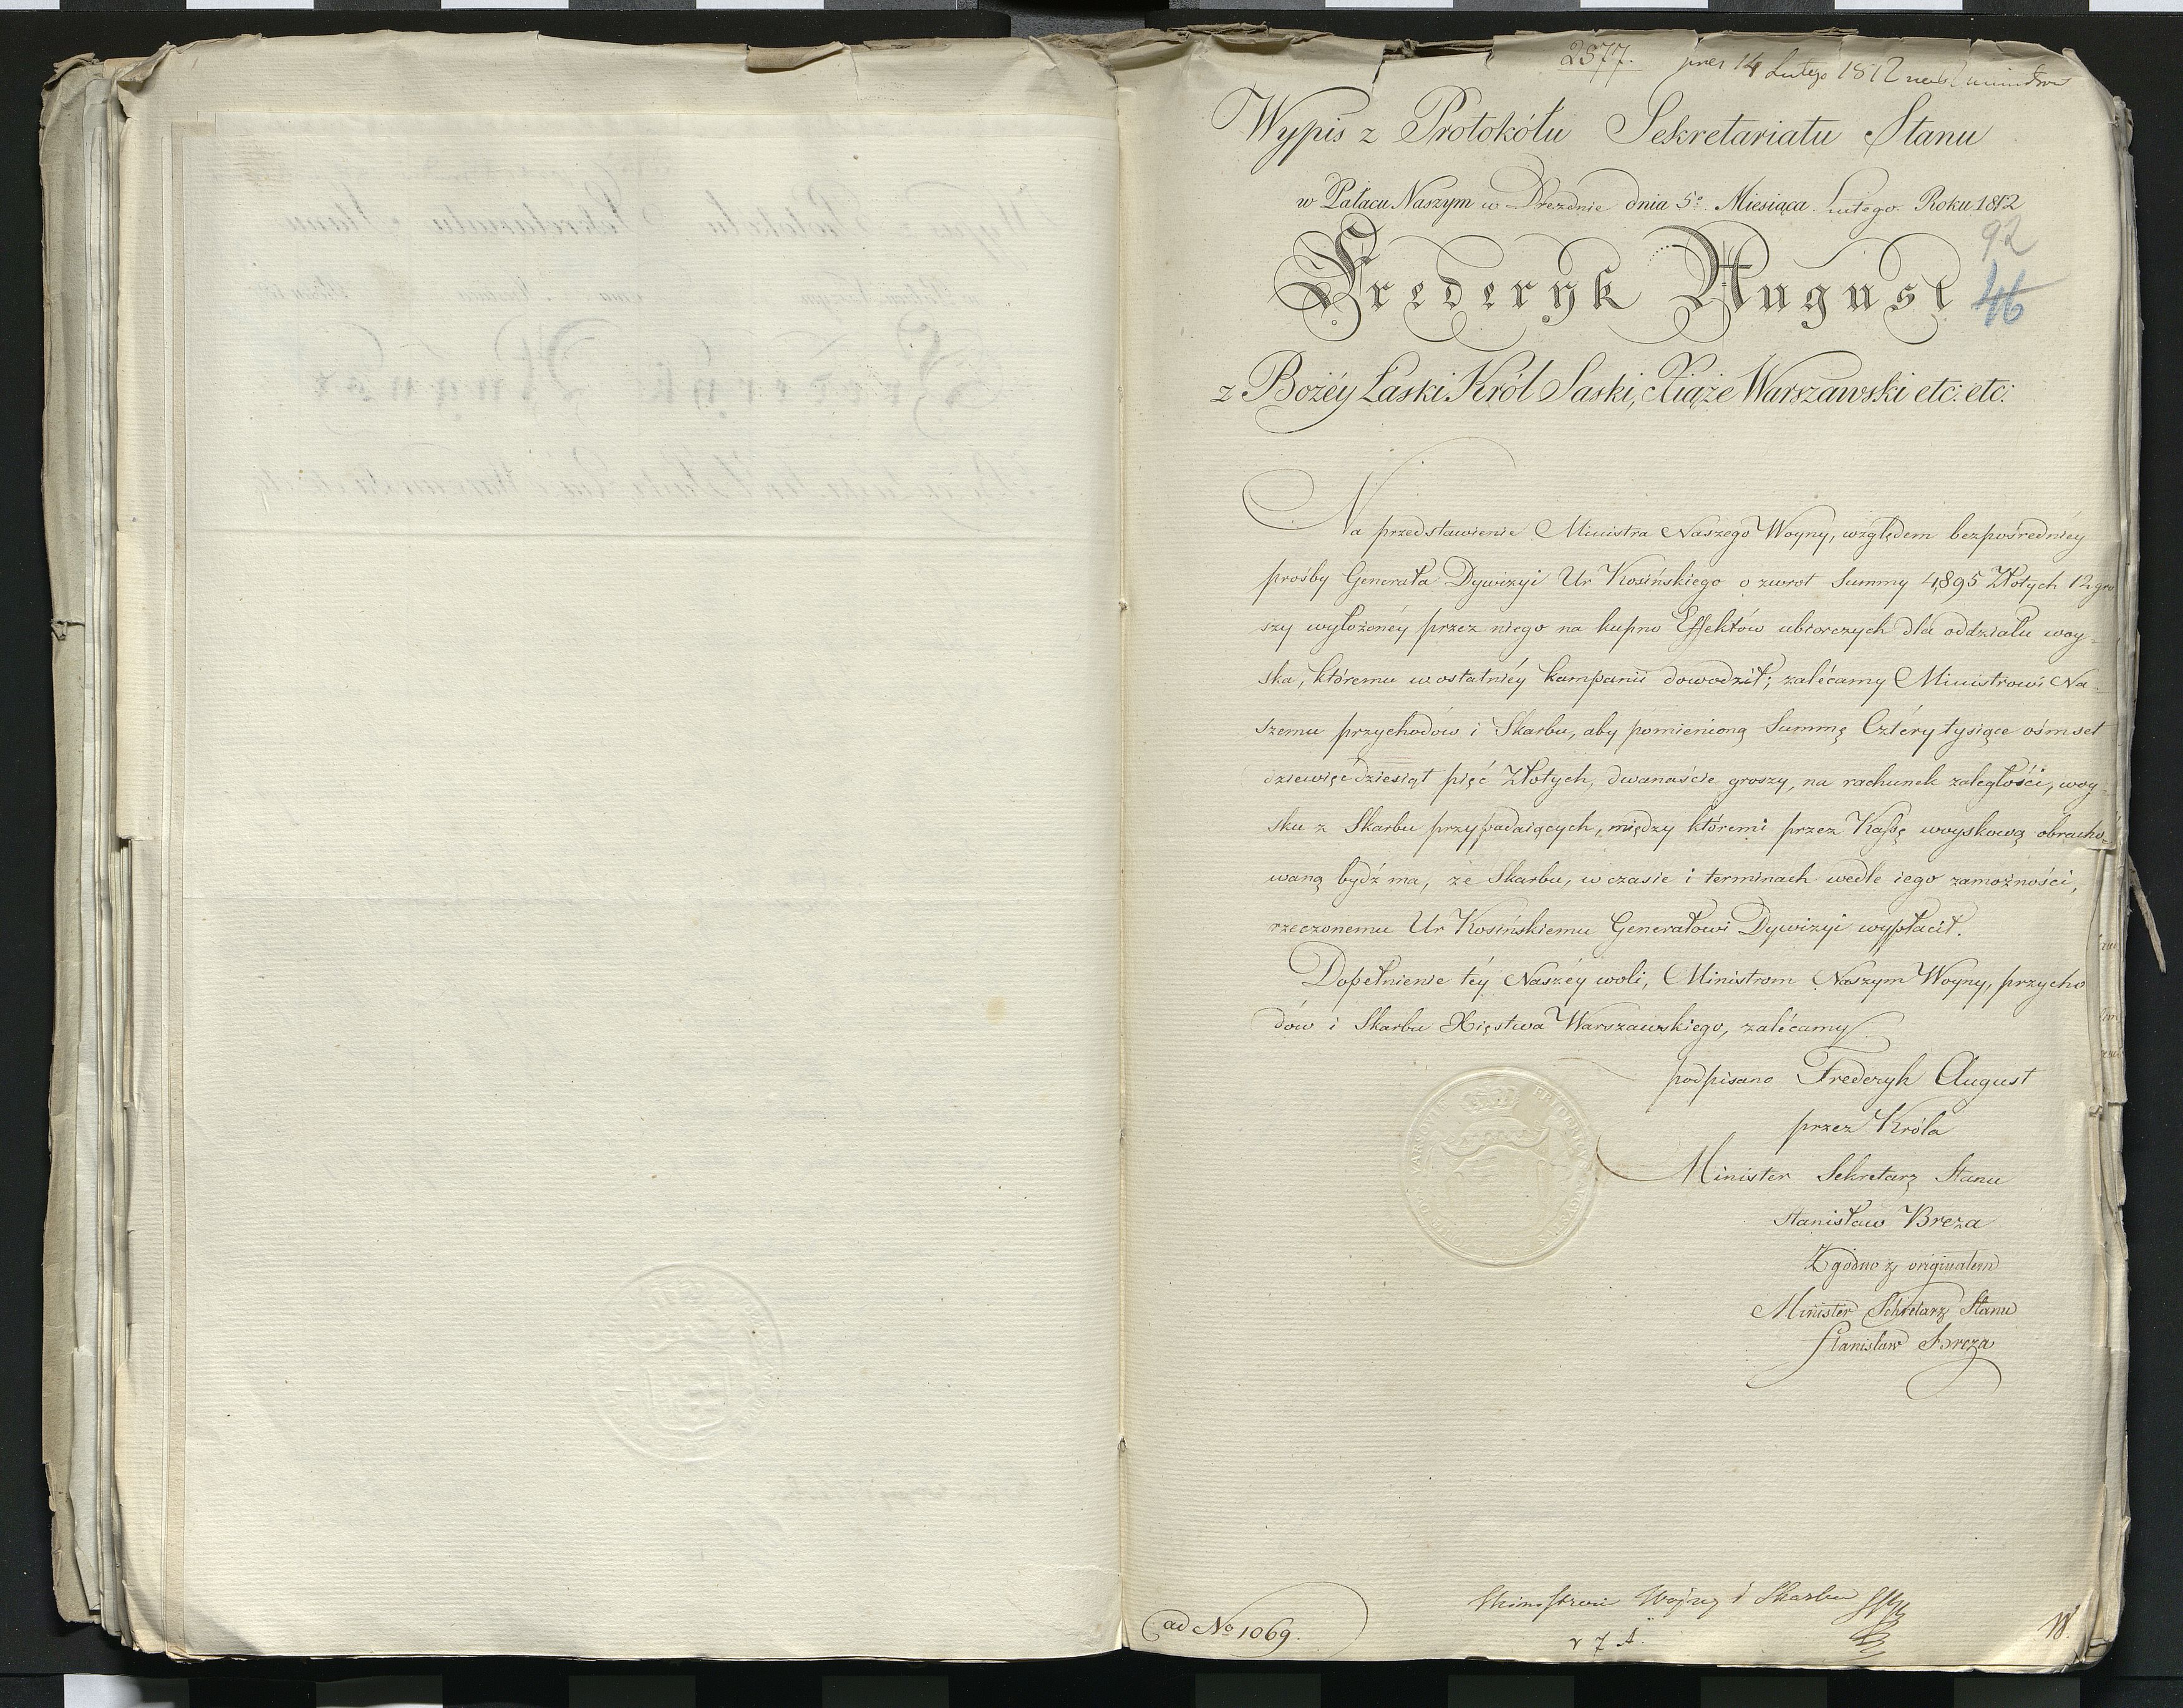 2577. 14 Lutego 1812
Wypis z Protokółu Sekretariatu Stanu
w Pałacu Naszym w Dreznie dnia 5º Miesiąca Lutego Roku 1812
92
Frederyk August
46
z Bożéy Łaski Król Saski, Xiąże Warszawski etc: etc:
Na przedstawienie Ministra Naszego Woyny, względem bezpośredniéy
prośby Generała Dywizyi Ur Kosińskiego o zwrot Summy 4,895 Złotych 12 gro
szy wyłożonéy przez niego na kupno Effektów ubiorczych dla oddziału woy-
ska, któremu w ostatniéy kampanii dowodził; zalécamy Ministrowi Na-
szemu przychodów i Skarbu, aby pomienioną Summę Cztéry tysiące ośmset
dziewięćdziesiąt pięć Złotych, dwanaście groszy, na rachunek zaległości, woy-
sku z Skarbu przypadaiących, między któremi przez Kaßę woyskową obracho-
waną bydź ma, ze Skarbu, w czasie i terminach wedle iego zamożności,
rzeczonemu Ur Kosińskiemu Generałowi Dywizyi wypłacił.
Dopełnienie téy Naszéy woli, Ministrom Naszym Woyny, przycho
dów i Skarbu Xięstwa Warszawskiego, zalécamy
podpisano Frederyk August
przez Króla
Minister Sekretarz Stanu
Stanisław Breza
Zgodno z originałem
Minister Sekretarz Stanu
Stanisław Breza
Woyny i Skarbu
ad No 1069.